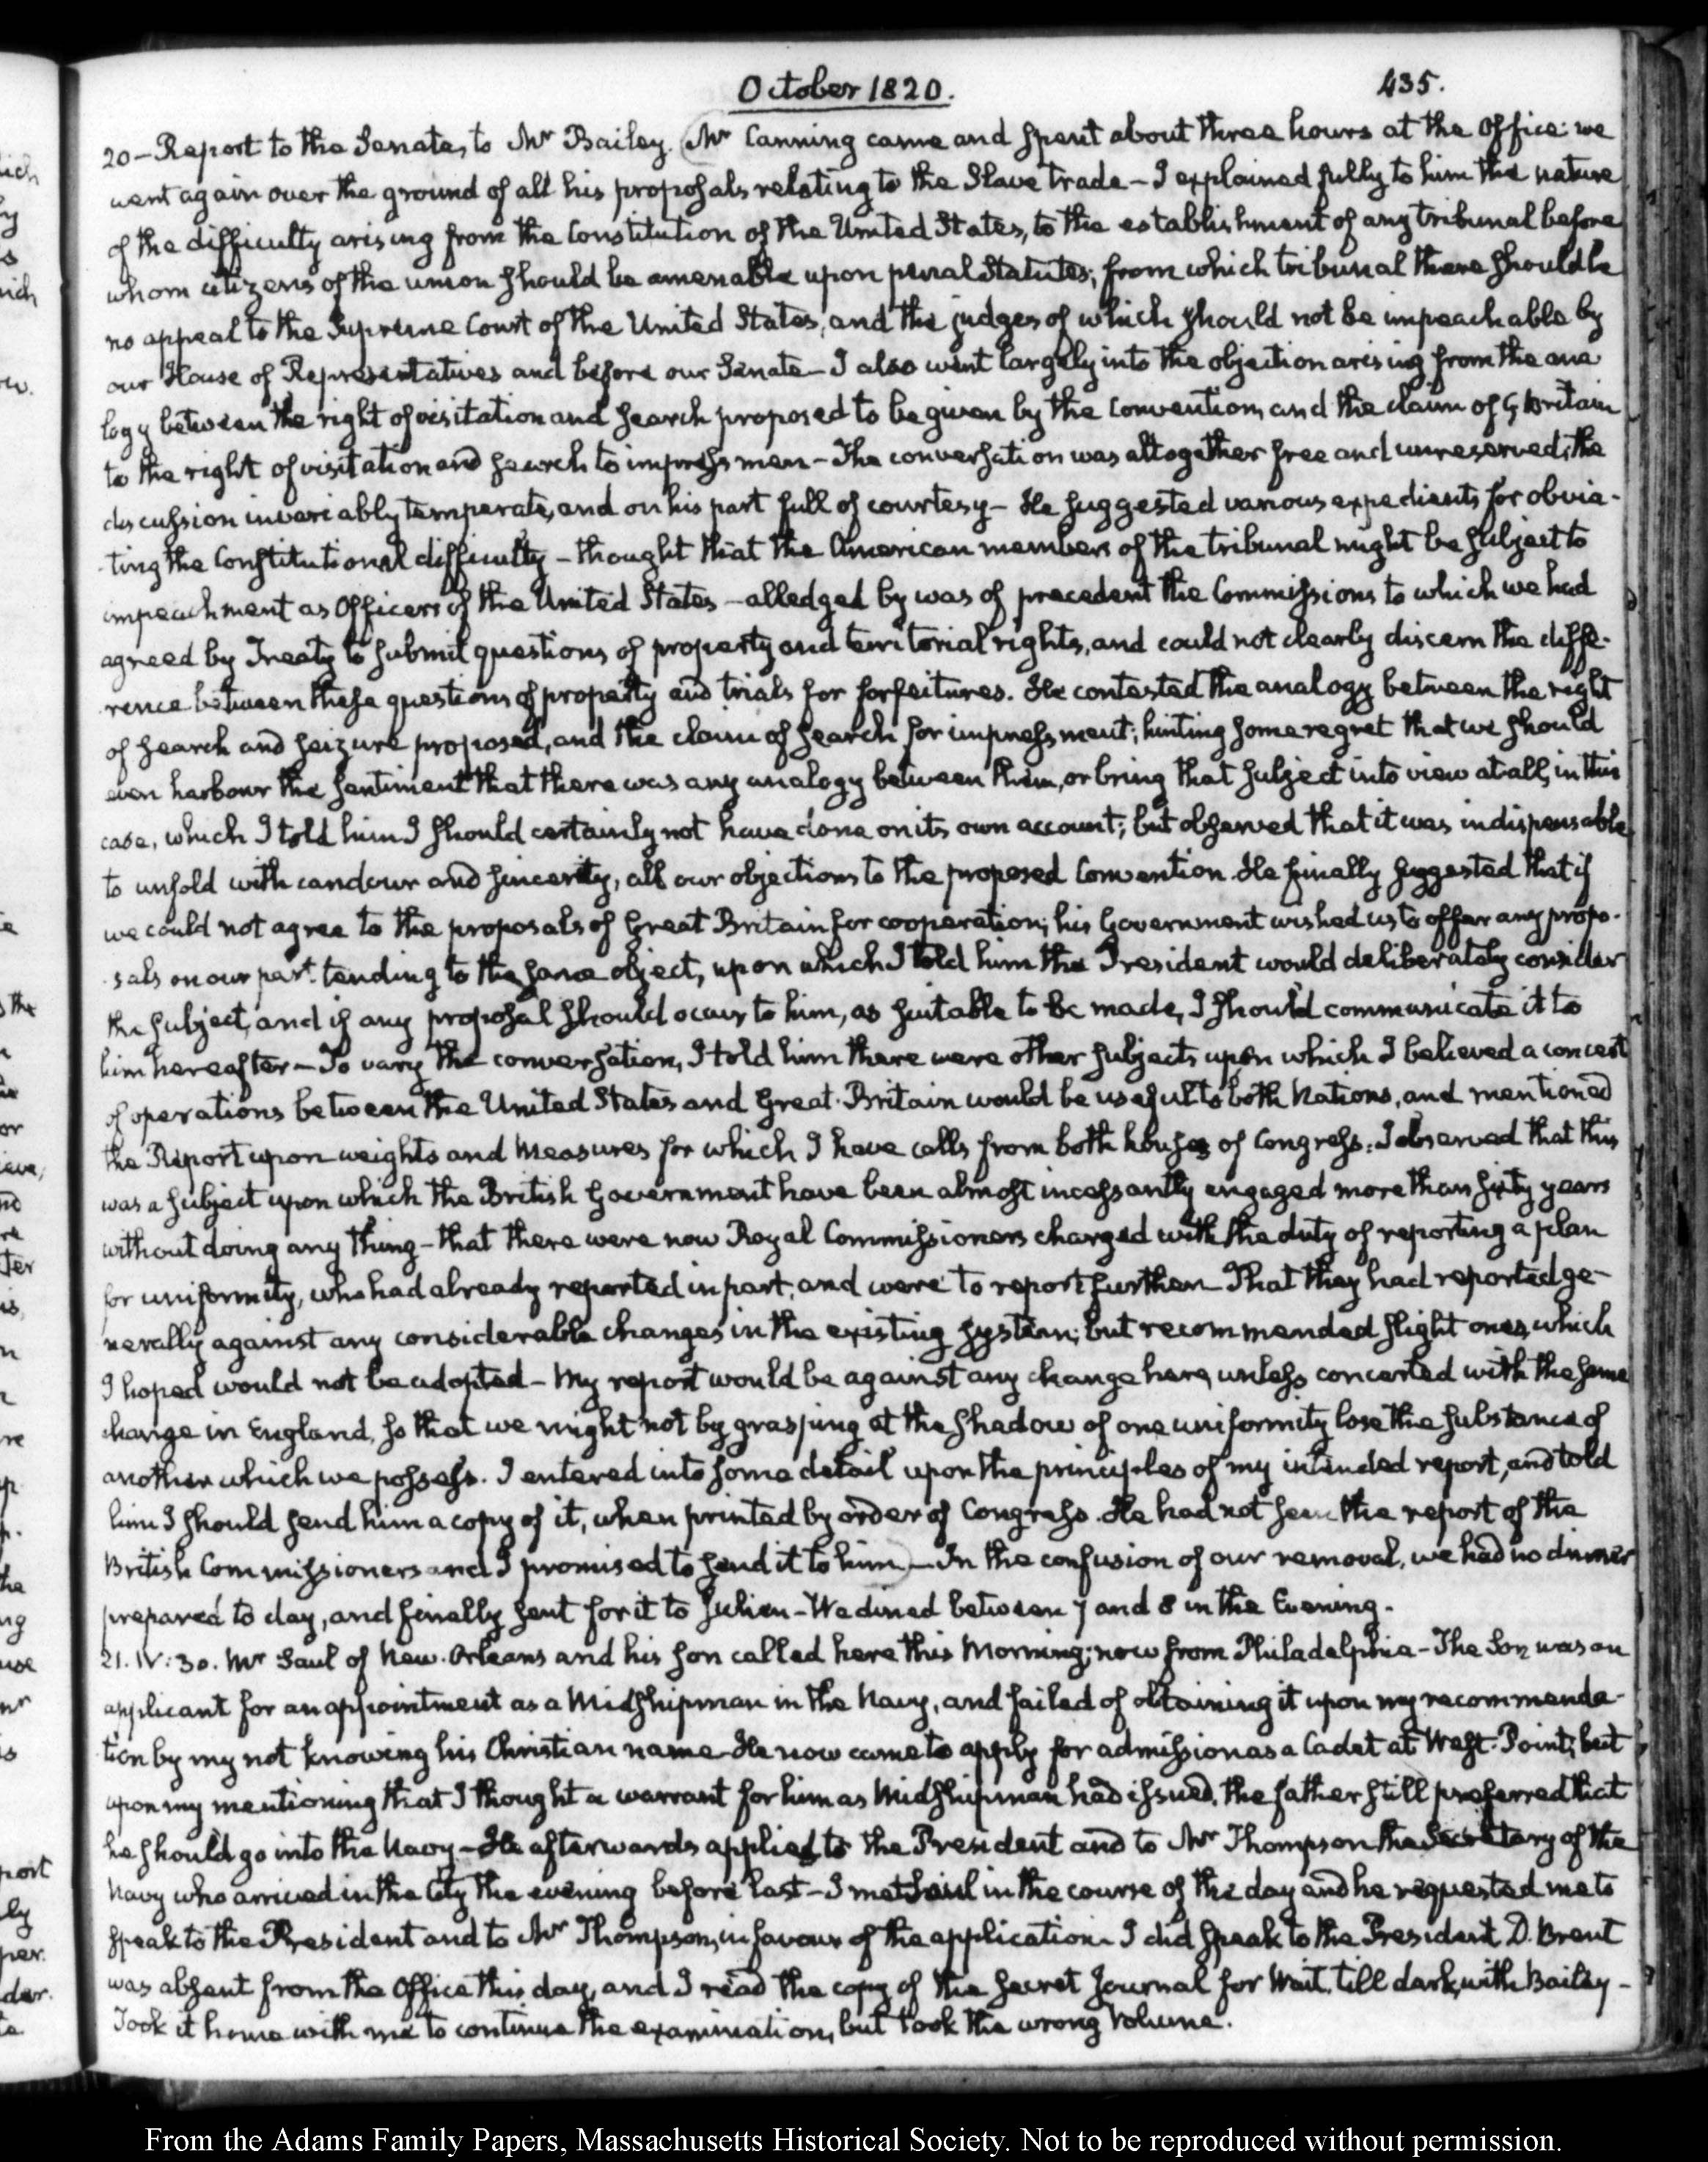 October 1820. 435.
20 – Report to the Senate, to Mr Bailey. (Mr Canning came and spent about three hours at the Office: we
went again over the ground of all his proposals relating to the Slave trade – I explained fully to him the nature
of the difficulty arising from the Constitution of the United States, to the establishment of any tribunal before
whom citizens of the union should be amenable upon penal Statutes; from which tribunal there should be
no appeal to the Supreme Court of the United States, and the judges of which should not be impeachable by
our House of Representatives and before our Senate – I also went largely into the objection arising from the ana
logy between the right of visitation and search proposed to be given by the Convention, and the claim of G. Britain
to the right of visitation and search to impress men – The conversation was altogether free and unreserved; the
discussion invariably temperate, and on his part full of courtesy – He suggested various expedients for obvia-
-ting the Constitutional difficulty – thought that the American members of the tribunal might be subject to
impeachment as Officers of the United States – alledged by was of precedent the Commissions to which we had
agreed by Treaty to submit questions of property and territorial rights, and could not clearly discern the diffe-
-rence between these questions of property and trials for forfeitures. He contested the analogy between the right
of search and seizure proposed, and the claim of search for impressment; hinting some regret that we should
even harbour the sentiment that there was any analogy between them, or bring that subject into view at all, in this
case, which I told him I should certainly not have done on its own account; but observed that it was indispensable
to unfold with candour and sincerity, all our objections to the proposed Convention. He finally suggested that if
we could not agree to the proposals of Great Britain for cooperation; his Government wished us to offer any propo-
-sals on our part tending to the same object, upon which I told him the President would deliberately consider
the subject, and if any proposal should occur to him, as suitable to be made, I should communicate it to
him hereafter – To vary the conversation, I told him there were other subjects upon which I believed a concert
of operations between the United States and Great-Britain would be useful to both Nations, and mentioned
the Report upon weights and Measures for which I have calls from both houses of Congress. I observed that this
was a subject upon which the British Government have been almost incessantly engaged more than sixty years
without doing any thing – that there were now Royal Commissioners charged with the duty of reporting a plan
for uniformity, who had already reported in part, and were to report further – That they had reported ge-
nerally against any considerable changes in the existing system; but recommended slight ones, which
I hoped would not be adopted – My report would be against any change here, unless concerted with the same
change in England, so that we might not by grasping at the shadow of one uniformity lose the substance of
another which we possess. I entered into some detail upon the principles of my intended report, and told
him I should send him a copy of it, when printed by order of Congress. He had not seen the report of the
British Commissioners and I promised to send it to him) – In the confusion of our removal, we had no dinner
prepared to day, and finally sent for it to Julien – We dined between 7 and 8 in the Evening.
21. IV: 30. Mr Saul of New-Orleans and his son called here this Morning; now from Philadelphia – The Son was an
applicant for an appointment as a Midshipman in the Navy, and failed of obtaining it upon my recommenda-
tion by my not knowing his Christian name – He now came to apply for admission as a Cadet at West-Point; but
upon my mentioning that I thought a warrant for him as Midshipman had issued, the father still preferred that
he should go into the Navy – He afterwards applied to the President and to Mr Thompson the Secretary of the
Navy who arrived in the City the evening before last – I met Saul in the course of the day and he requested me to
speak to the President and to Mr Thompson, in favour of the application – I did speak to the President. D. Brent
was absent from the Office this day, and I read the copy of the Secret Journal for Wait, till dark, with Bailey –
Took it home with me to continue the examination, but took the wrong Volume.
From the Adams Family Papers, Massachusetts Historical Society. Not to be reproduced without permission.